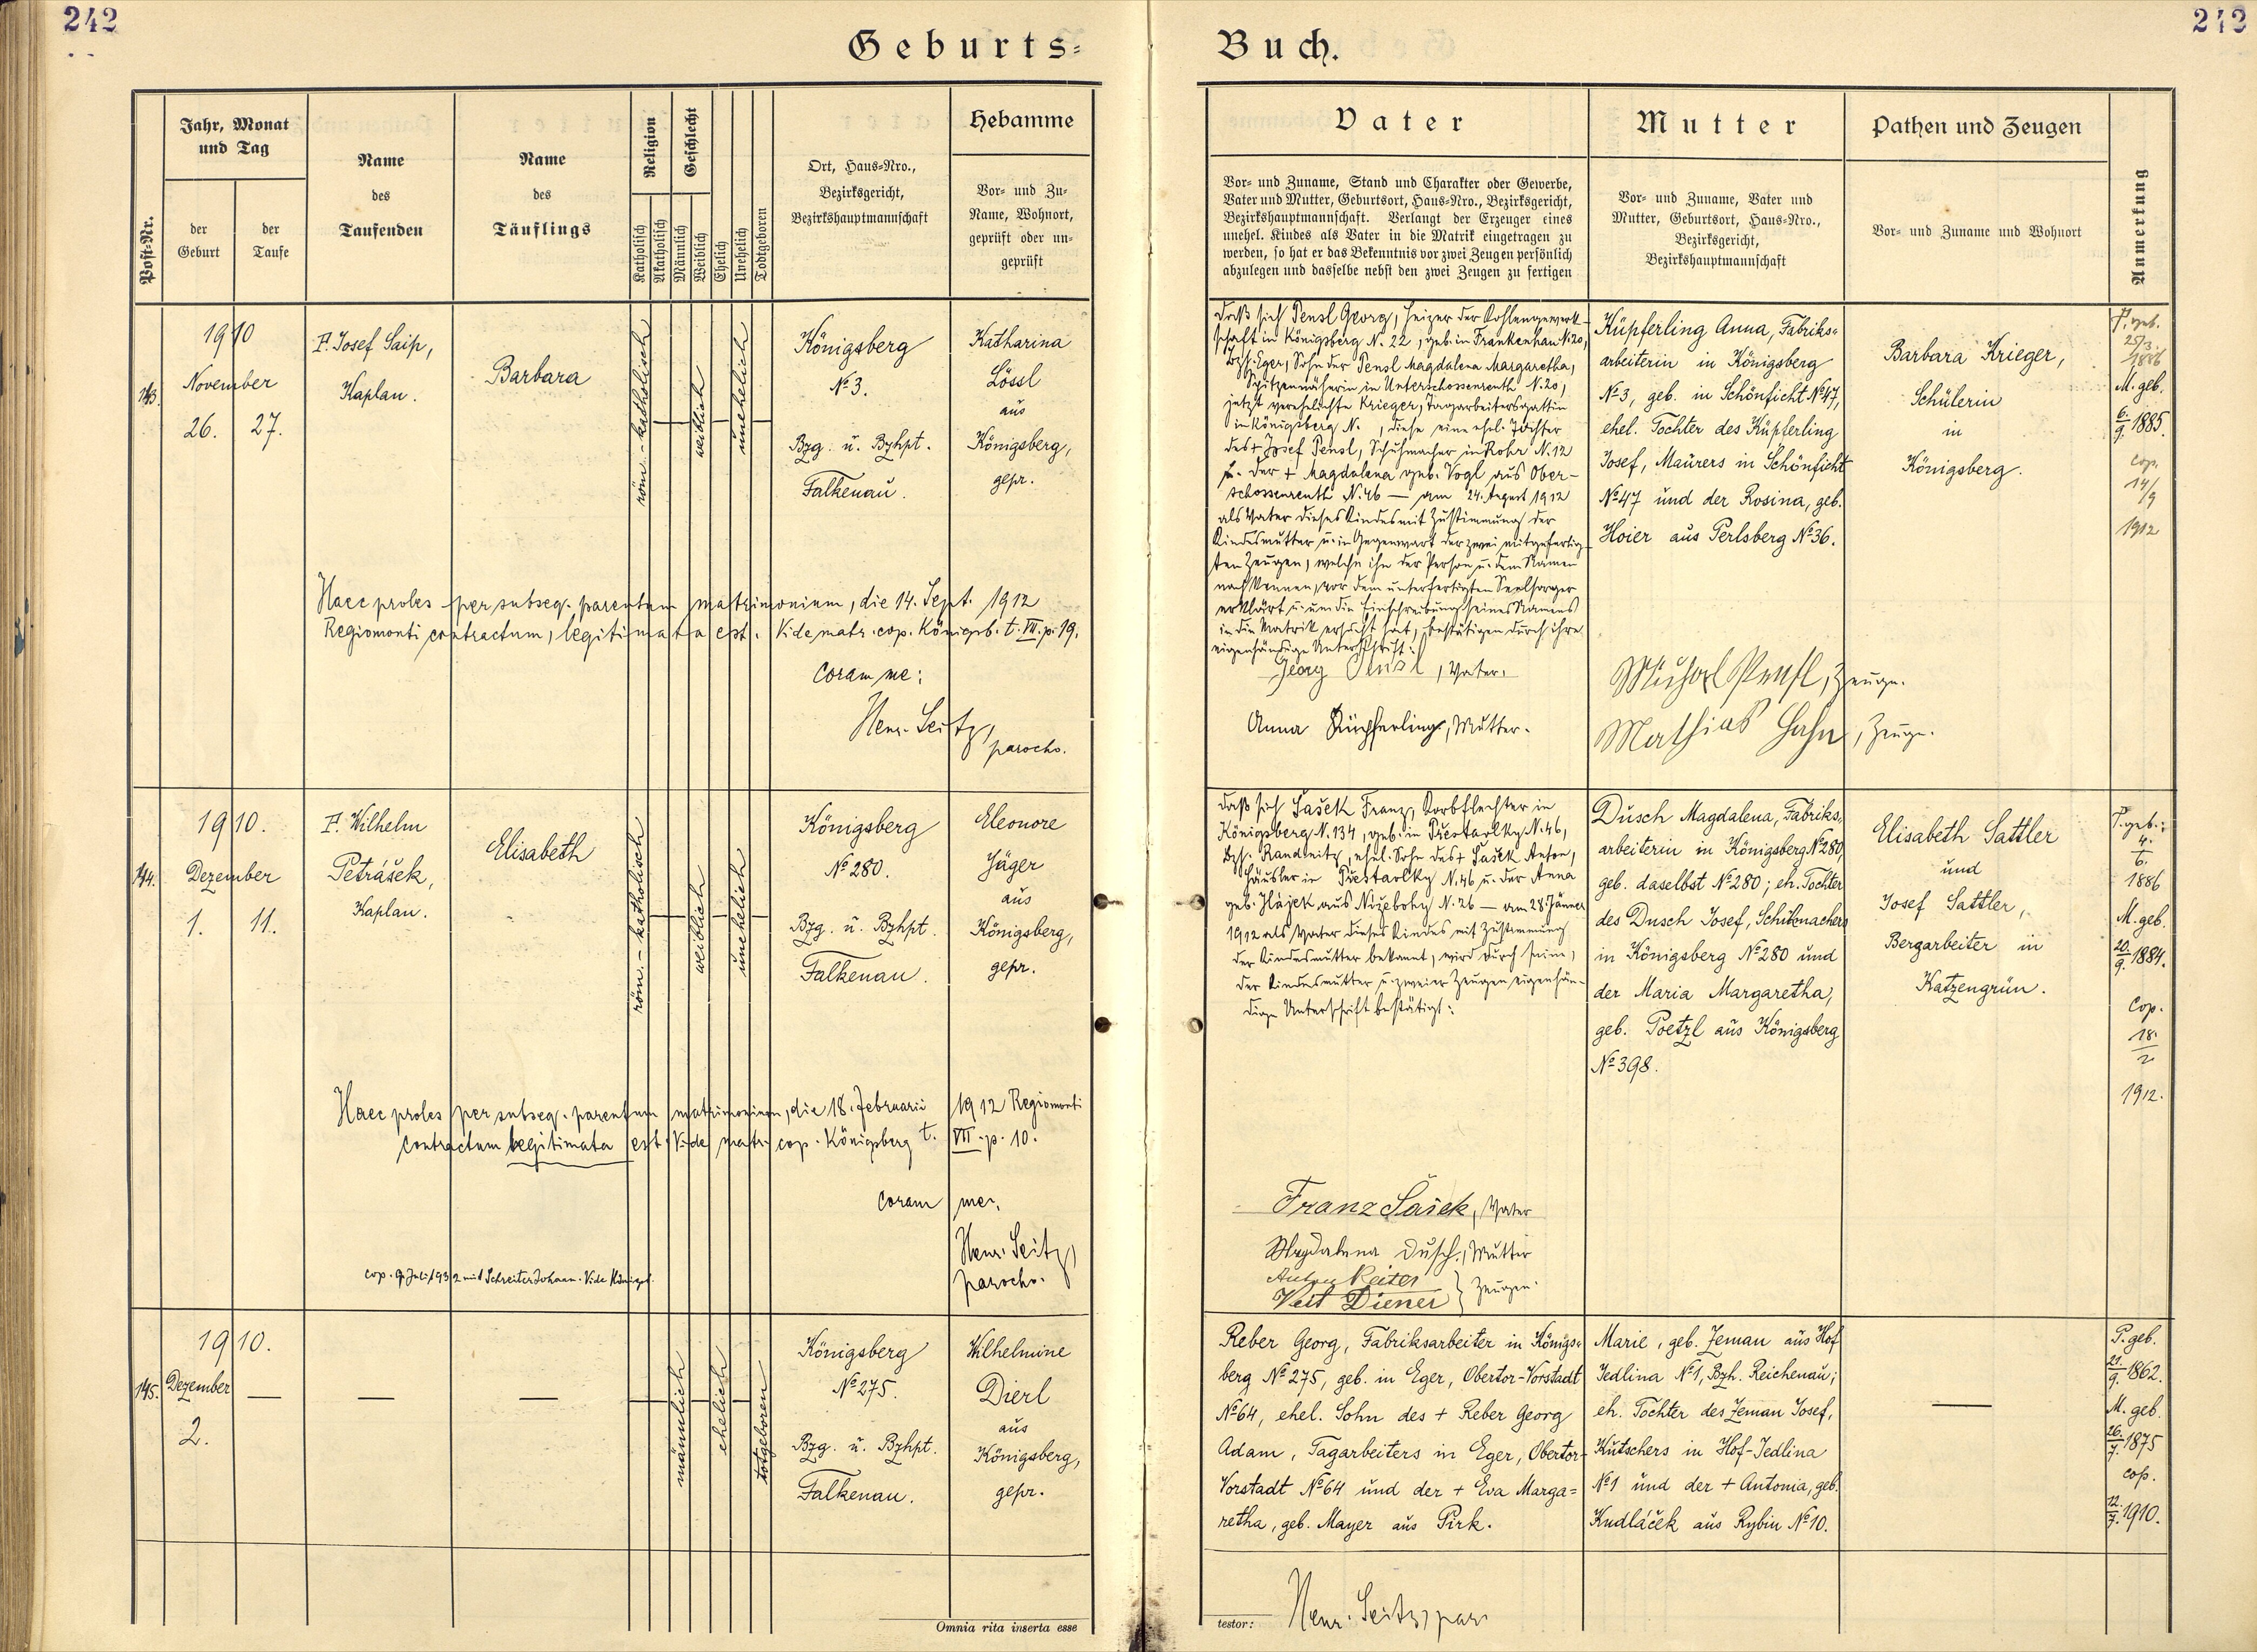 242
242
Geburts-
Buch.
Post-Nr.
Jahr, Monat
und Tag
der
Geburt
der
Taufe
Name
des
Taufenden
Name
des
Täuflings
Religion
Katholisch
Akatholisch
Geschlecht
Männlich
Weiblich
Ehelich
Unehelich
Todtgeboren
Ort, Haus-Nro.,
Bezirksgericht,
Bezirkshauptmannschaft
Hebamme
Vor- und Zu-
Name, Wohnort,
geprüft oder un-
geprüft
Vater
Vor- und Zuname, Stand und Charakter oder Gewerbe,
Vater und Mutter, Geburtsort, Haus-Nro., Bezirksgericht,
Bezirkshauptmannschaft. Verlangt der Erzeuger eines
unehel. Kindes als Vater in die Matrik eingetragen zu
werden, so hat er das Bekenntnis vor zwei Zeugen persönlich
abzulegen und dasselbe nebst den zwei Zeugen zu fertigen
Mutter
Vor- und Zuname, Vater und
Mutter, Geburtsort, Haus-Nro.,
Bezirksgericht,
Bezirkshauptmannschaft
Pathen und Zeugen
Vor- und Zuname und Wohnort
Anmerkung
143.
1910
November
26. 27.
P. Josef Saip,
Kaplan.
Barbara
röm.-katholisch
weiblich
unehelich
Königsberg
No 3.
Bzg. u. Bzhpt.
Falkenau.
Katharina
Lössl
aus
Königsberg,
gepr.
Daß sich Pensl Georg, Heizer der Kohlengewerk-
schaft in Königsberg N. 22, geb. in Frankenhau N. 20,
Bzh. Eger, Sohn der Pensl Magdalena Margaretha,
Spitzennäherin in Unterschossenreuth N. 20,
jetzt verehelichte Krieger, Tagarbeitersgattin
in Königsberg N. , diese eine ehel. Tochter
des + Josef Pensl, Schuhmacher in Rohr N. 12
u. der + Magdalena geb. Vogl aus Ober-
schossenreuth N. 46 — am 24. August 1912
als Vater dieses Kindes mit Zustimmung der
Kindesmutter u. in Gegenwart der zwei mitgefertig-
ten Zeugen, welche ihn der Person u. dem Namen
nach kennen, vor dem unterfertigten Seelsorger
erklärt u. um die Einschreibung seines Namens
in die Matrik ersucht hat, bestätigen durch ihre
eigenhändige Unterschrift:
Georg Pensl, Vater.
Anna Küpferling, Mutter.
Küpferling Anna, Fabriks-
arbeiterin in Königsberg
No 3, geb. in Schönficht No 47,
ehel. Tochter des Küpferling
Josef, Maurers in Schönficht
No 47 und der Rosina, geb.
Hoier aus Perlsberg No 36.
Michael Pensl, Zeuge.
Mathias Hahn, Zeuge.
Barbara Krieger,
Schülerin
in
Königsberg.
P. geb.
25/3.
1886
M. geb.
6/9. 1885.
cop.
14/9
1912
Haec proles per subseq. parentum matrimonium, die 14. Sept. 1912
Regiomonti contractum, legitimata est. Vide matr. cop. Königsb. t. VII. p. 19.
Coram me:
Henr. Seitz,
parocho.
144.
1910.
Dezember
1. 11.
P. Wilhelm
Petrášek,
Kaplan.
Elisabeth
röm.-katholisch
weiblich
unehelich
Königsberg
No 280.
Bzg. u. Bzhpt.
Falkenau.
Eleonore
Jäger
aus
Königsberg,
gepr.
Daß sich Šašek Franz, Korbflechter in
Königsberg N. 134, geb. in Přestavlky N. 46,
Bzh. Raudnitz, ehel. Sohn des + Šašek Anton,
Häusler in Přestavlky N. 46 u. der Anna
geb. Hájek aus Nižebohy N. 26 — am 28. Jänner
1912 als Vater dieses Kindes mit Zustimmung
der Kindesmutter bekannt, wird durch seine,
der Kindesmutter u. zweier Zeugen eigenhän-
dige Unterschrift bestätigt:
Franz Šašek, Vater
Magdalena Dusch, Mutter
Anton Reiter
Veit Diener } Zeugen.
Dusch Magdalena, Fabriks-
arbeiterin in Königsberg No 280,
geb. daselbst No 280; eh. Tochter
des Dusch Josef, Schuhmachers
in Königsberg No 280 und
der Maria Margaretha,
geb. Poetzl aus Königsberg
No 398.
Elisabeth Sattler
und
Josef Sattler,
Bergarbeiter in
Katzengrün.
P. geb.:
4.
6.
1886
M. geb.
20/9. 1884.
Cop.
18.
2
1912.
Haec proles per subseq. parentum matrimonium, die 18. Februarii 1912 Regiomonti
contractum legitimata est. Vide matr. cop. Königsberg t. VII. p. 10.
Coram me:
Henr. Seitz,
parocho.
cop. 9. Juli 1932 mit Schreiter Johann. Vide Königsb.
145.
1910.
Dezember
2.
—
—
—
männlich
ehelich
totgeboren
Königsberg
No 275.
Bzg. u. Bzhpt.
Falkenau.
Wilhelmine
Dierl
aus
Königsberg,
gepr.
Reber Georg, Fabriksarbeiter in Königs-
berg No 275, geb. in Eger, Obertor-Vorstadt
No 64, ehel. Sohn des + Reber Georg
Adam, Tagarbeiters in Eger, Obertor-
Vorstadt No 64 und der + Eva Marga=
retha, geb. Mayer aus Pirk.
Marie, geb. Zeman aus Hof
Jedlina No 1, Bzh. Reichenau;
eh. Tochter des Zeman Josef,
Kutschers in Hof-Jedlina
No 1 und der + Antonia, geb.
Kudláček aus Rybin No 10.
—
P. geb.
21/9. 1862.
M. geb.
26/7. 1875
cop.
12/7. 1910.
Omnia rita inserta esse
testor: Henr. Seitz, par.